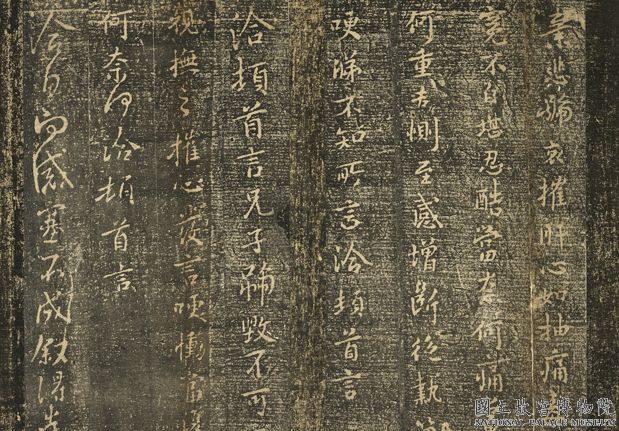 悲號哀摧肝心如抽痛
寃不自堪忍酷當奈何痛
何重告惻至感增斷絕執
哽涕不知所言洽頓首言
洽頓首言兄子號毀不可
視撫之摧心發言哽慟當
何奈何洽頓首言
洽白向感塞不成敘得告
國立故宮博物院
NATIONAL PALACE MUSEUM